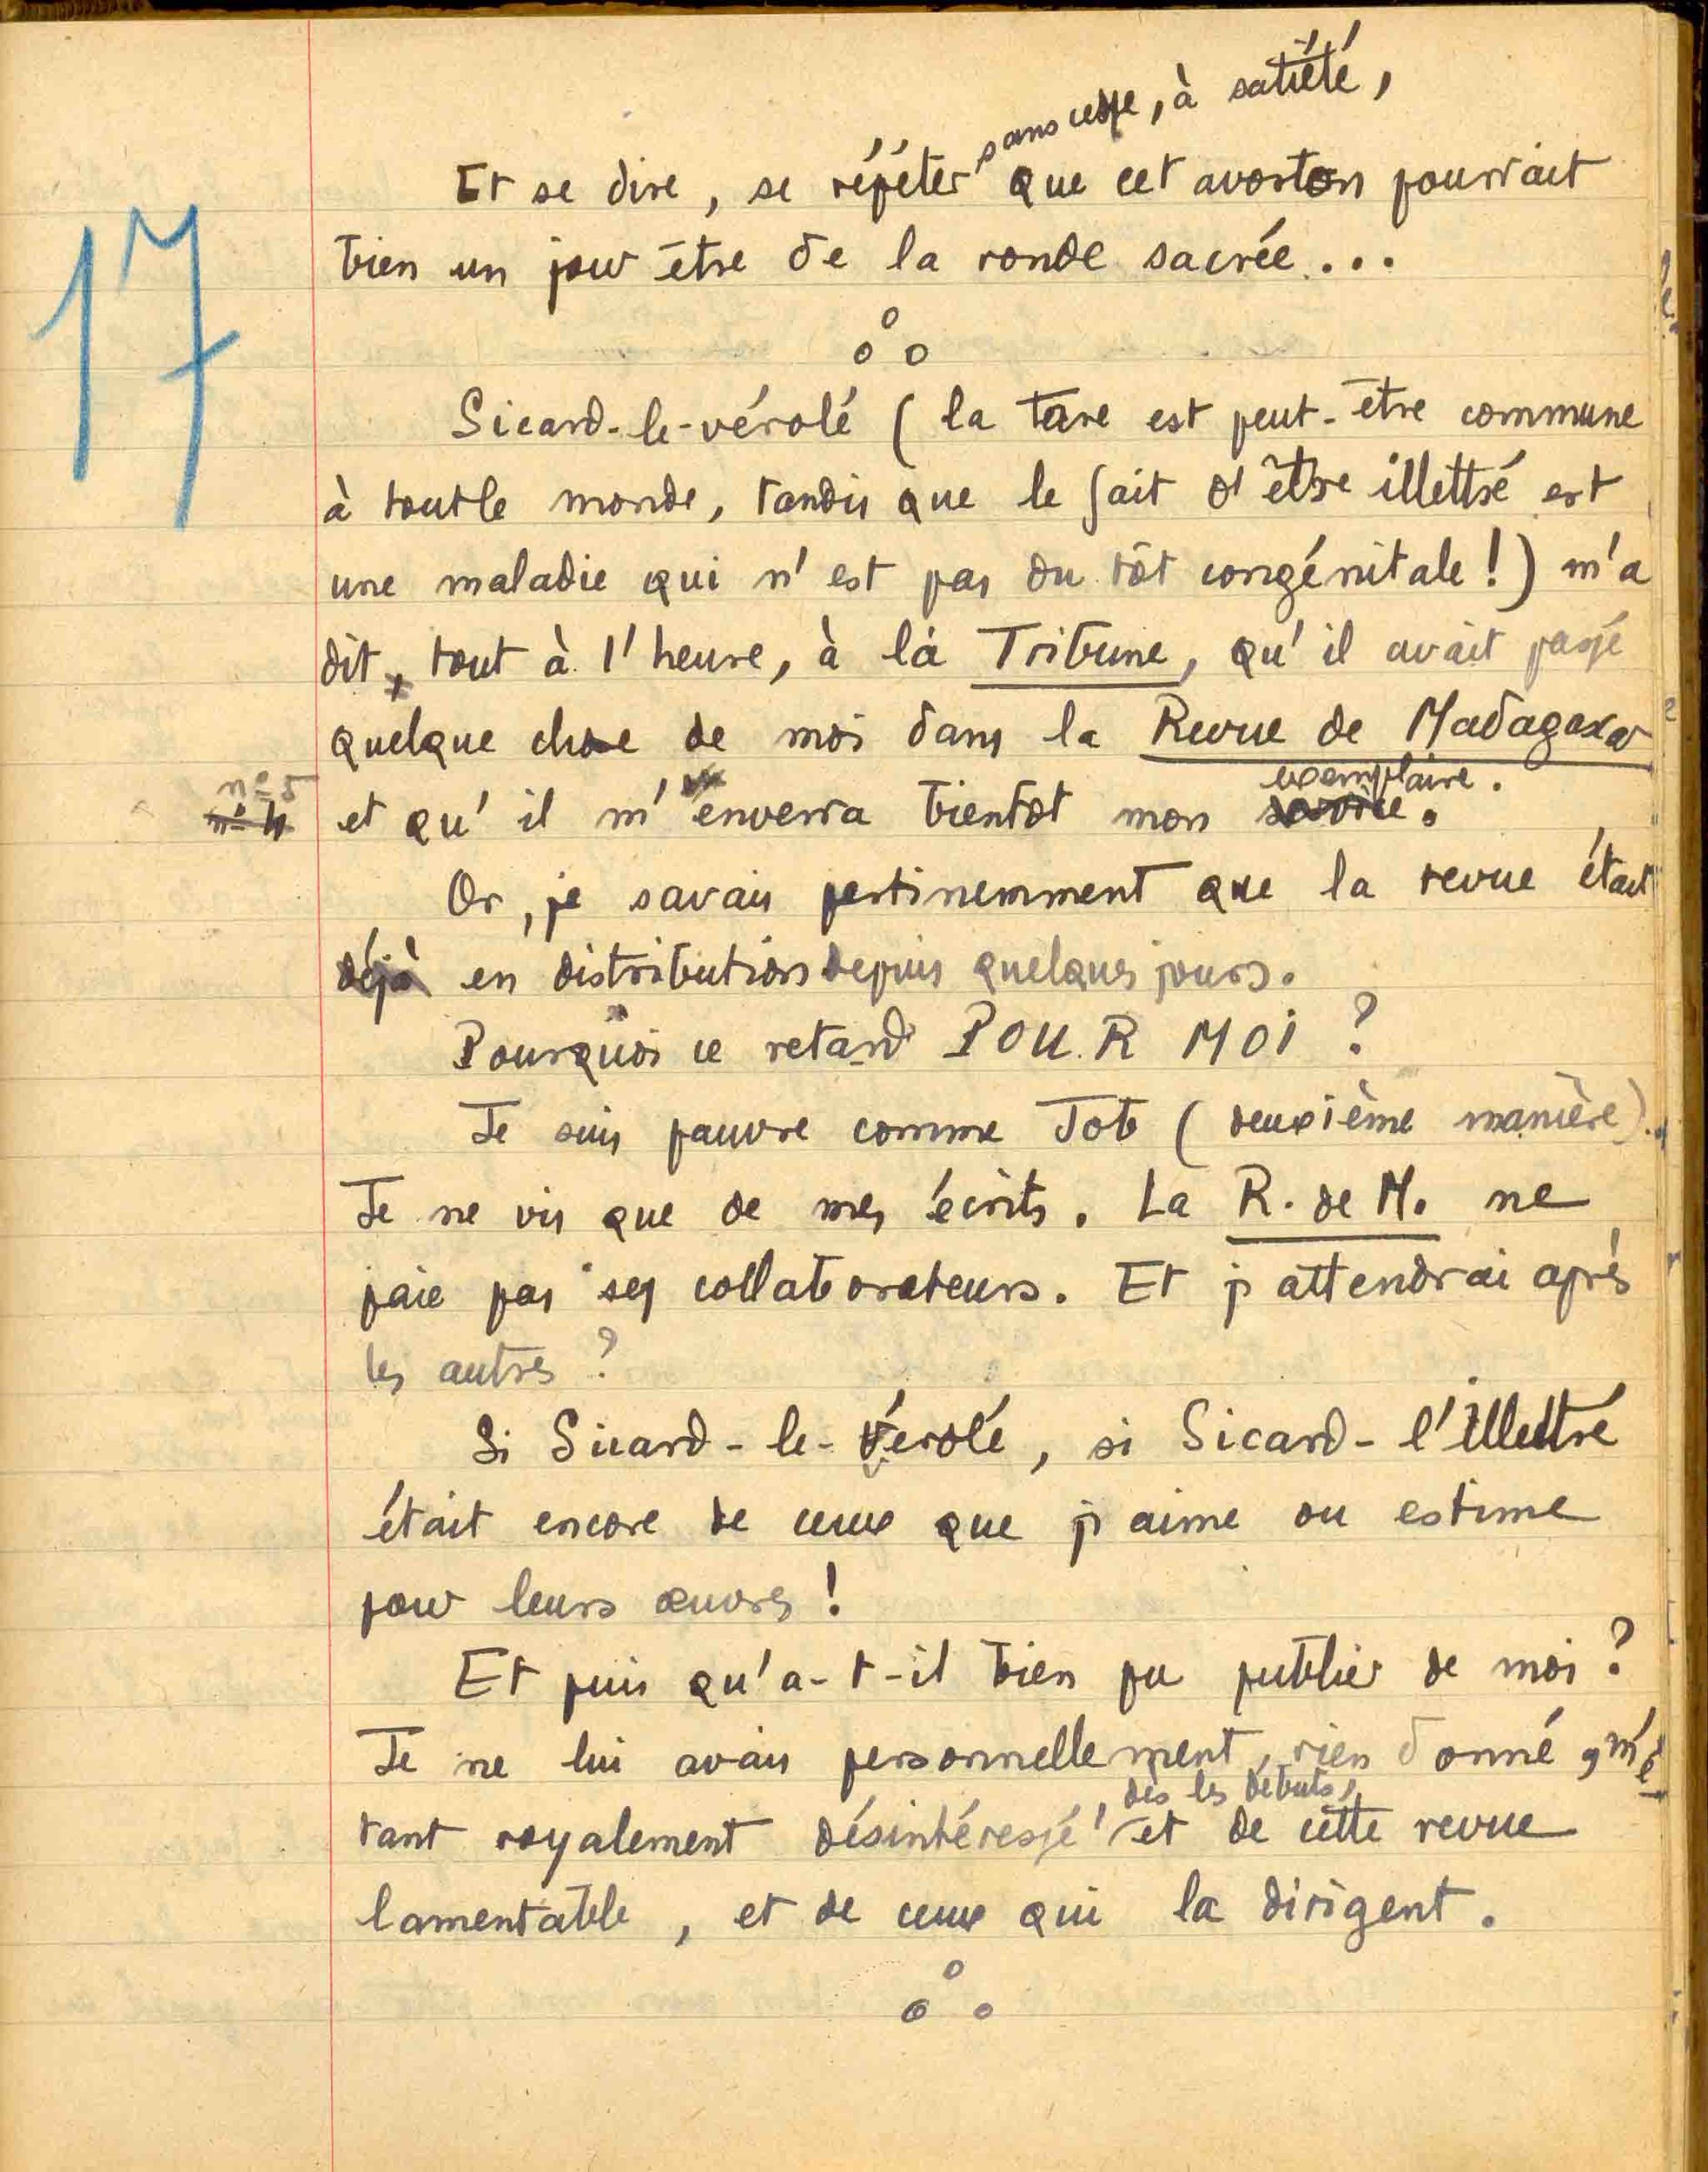 sans cesse, à satiété,
Et se dire, se répéter que cet avorton pourrait
bien un jour être de la ronde sacrée...
17
Sicard-le-vérolé (la tare est peut-être commune
à tout le monde, tandis que le fait d'être illettré est
une maladie qui n'est pas du tôt congénitale!) m'a
dit, tout à l'heure, à la Tribune, qu'il avait passé
quelque chose de moi dans la Revue de Madagascar
n° 5
exemplaire.
n° 4
et qu'il m'enverra bientôt mon service.
Or, je savais pertinemment que la revue était
déjà en distribution depuis quelques jours.
Pourquoi ce retard POUR MOI ?
Je suis pauvre comme Job (deuxième manière).
Je ne vis que de mes écrits. La R. de M. ne
paie pas ses collaborateurs. Et j'attendrai après
les autres ?
Si Sicard-le-Vérolé, si Sicard-l'illettré
était encore de ceux que j'aime ou estime
pour leurs œuvres !
Et puis qu'a-t-il bien pu publier de moi ?
Je ne lui avais personnellement, rien donné, m'é-
, dès les débuts,
tant royalement désintéressé et de cette revue
lamentable, et de ceux qui la dirigent.